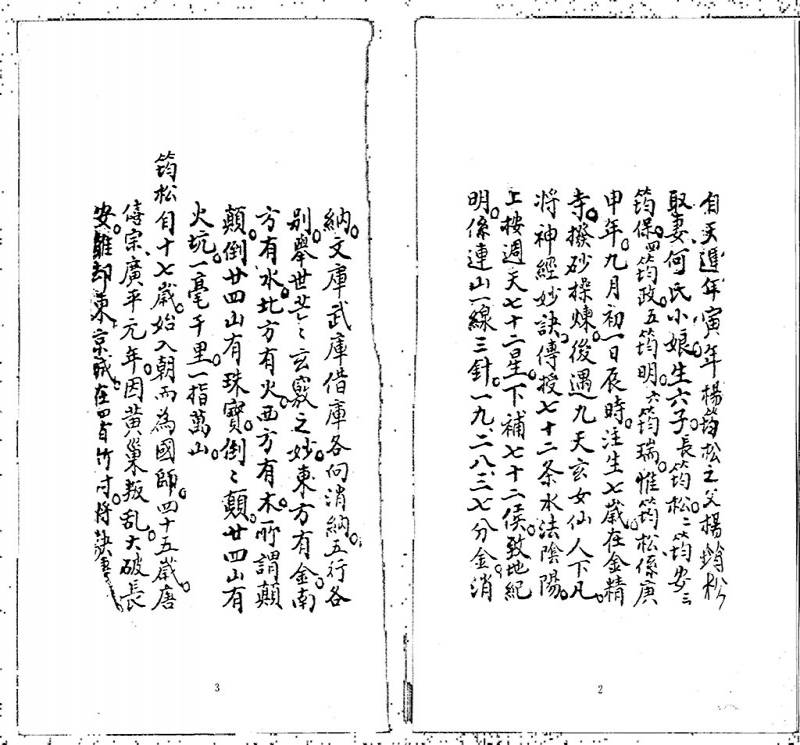 自天進年寅年楊筠松之父楊筠松
取妻何氏小娘生六子長筠松二筠安三
筠保四筠政五筠明六筠瑞惟筠松係庚
申年九月初一日辰時注生七歲在金精
寺撥砂操煉後遇九天玄女仙人下凡
將神經妙訣傳授七十二条水法陰陽
上按週天七十二星下補七十二侯致地紀
明係連山一線三針一九二八三七分金消
2
納文庫武庫借庫各向消納五行各
别舉世茫々玄竅之妙東方有金南
方有水北方有火西方有木所謂顛
顛倒廿四山有珠寶倒々顛廿四山有
火坑一毫千里一指萬山
筠松自十七歲始入朝而為國師四十五歲唐
僖宗廣平元年因黃巢叛乱大破長
安離却東京城在
3